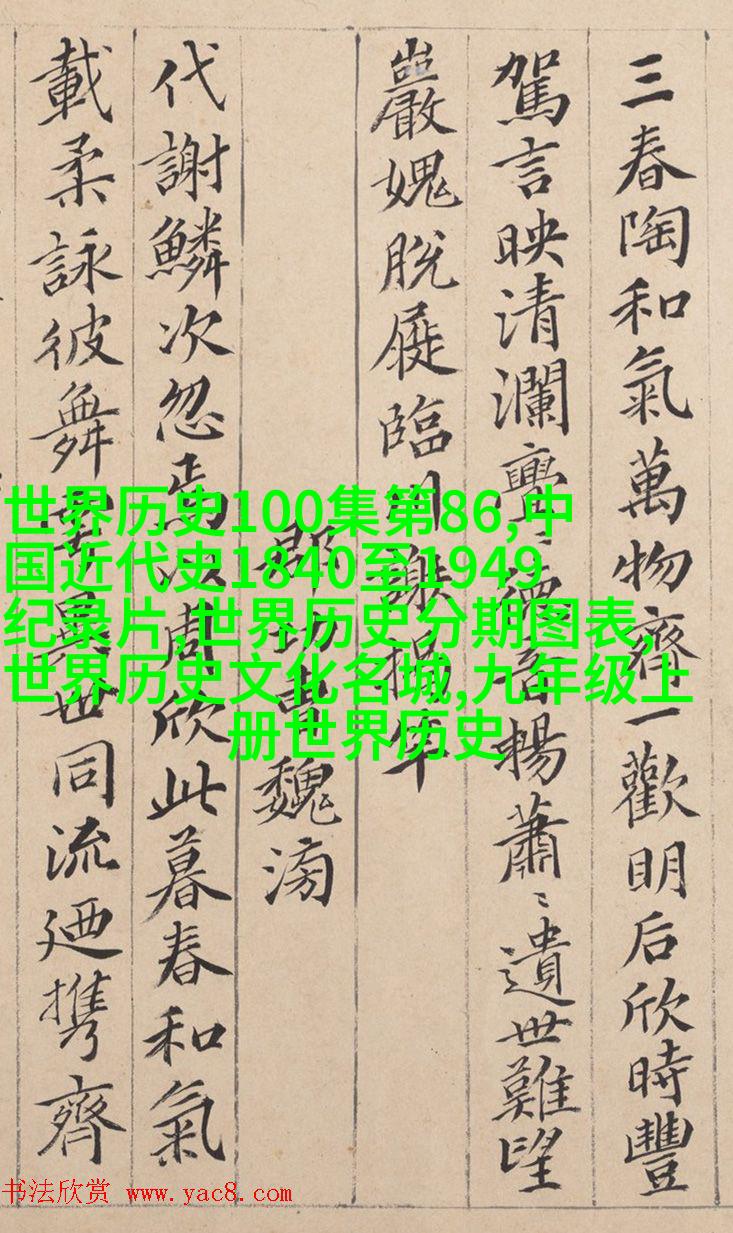 三春陶和氣萬物齊一歡明后欣時豐
駕言映清瀾亹〻德音暢蕭〻遺世難望
巖愧脫屣臨川謝揭竿
郡功曹魏滂
代謝鱗次忽焉以周欣此暮春和氣
載柔詠彼舞雩異世同流迺携齊
世界历史100集第86,中
国近代史1840至1949
纪录片,世界历史分期图表,
世界历史文化名城,九年级上
册世界历史
书法欣赏 www.yac8.com